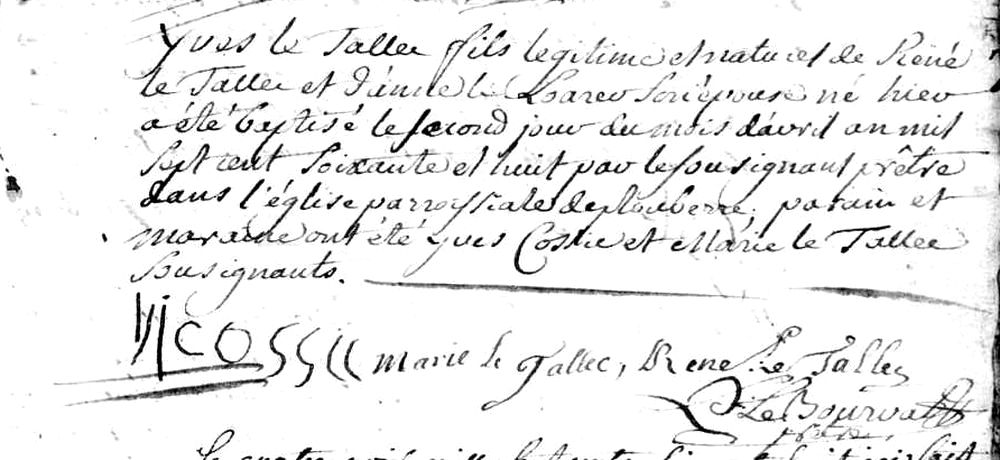 Yves le Tallec fils legitime et naturel de René
le Tallec et d'anne le son épouse né hier
a été baptisé le second jour du mois d'avril an mil
sept cent soixante et huit par le sousignant prêtre
dans l'église parroissiale de ploubezre, parain et
maraine ont été yves Cossic et Marie le Tallec
sousignants.
marie le Tallec, Rene Le Tallec